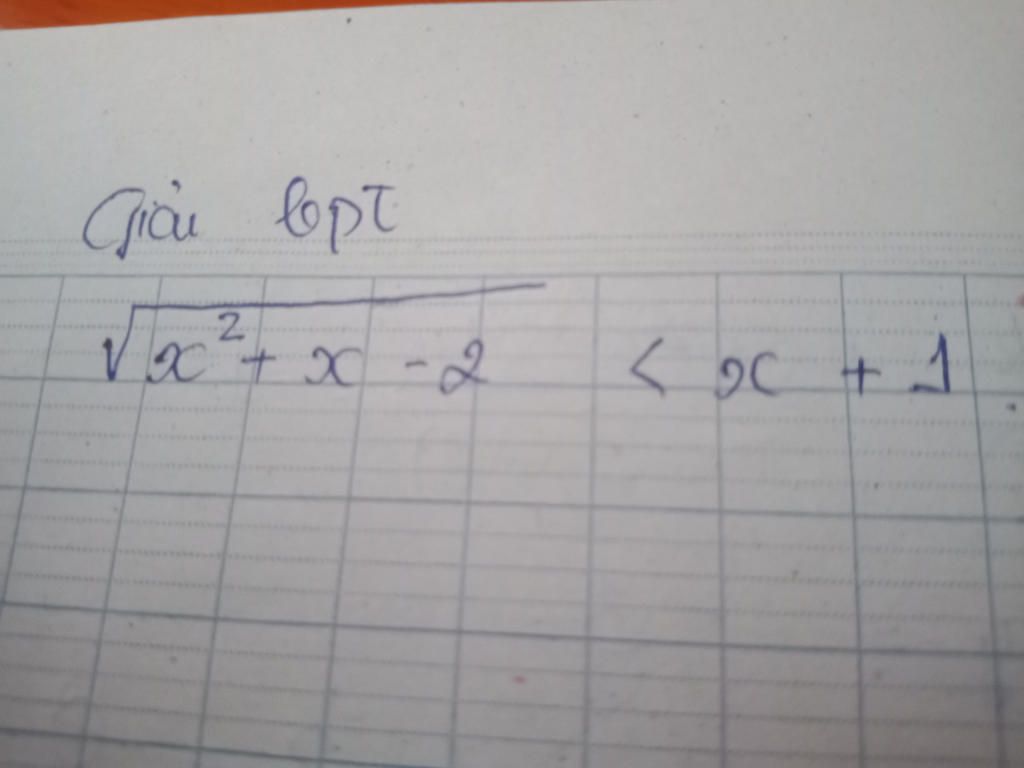 Giải bpt
√x²+ x - 2 < x + 1